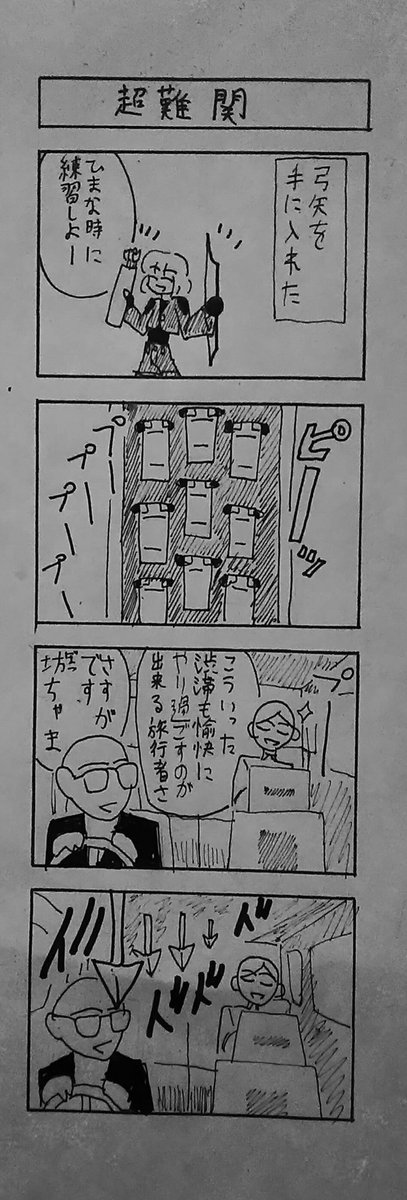 超難関
弓矢を
手に入れた
ひまな時に
練習しよー
ピーッ
プー
プー
プープー
プー
こういった
渋滞も愉快に
やり過ごすのが
出来る旅行者さ
さすが
です
坊ちゃま